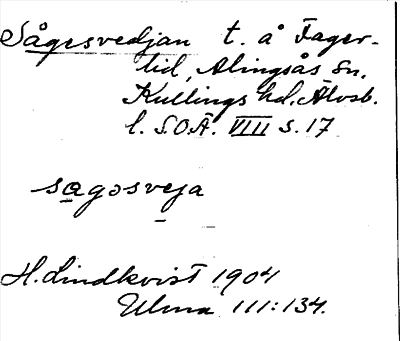 Sågesvedjan t. å Fager-
lid, Alingsås sn.
Kullings hd. Älvsb.
l. S.O.Ä. VIII s. 17
sagosveja
H. Lindkvist 1904
Ulma 111:134.